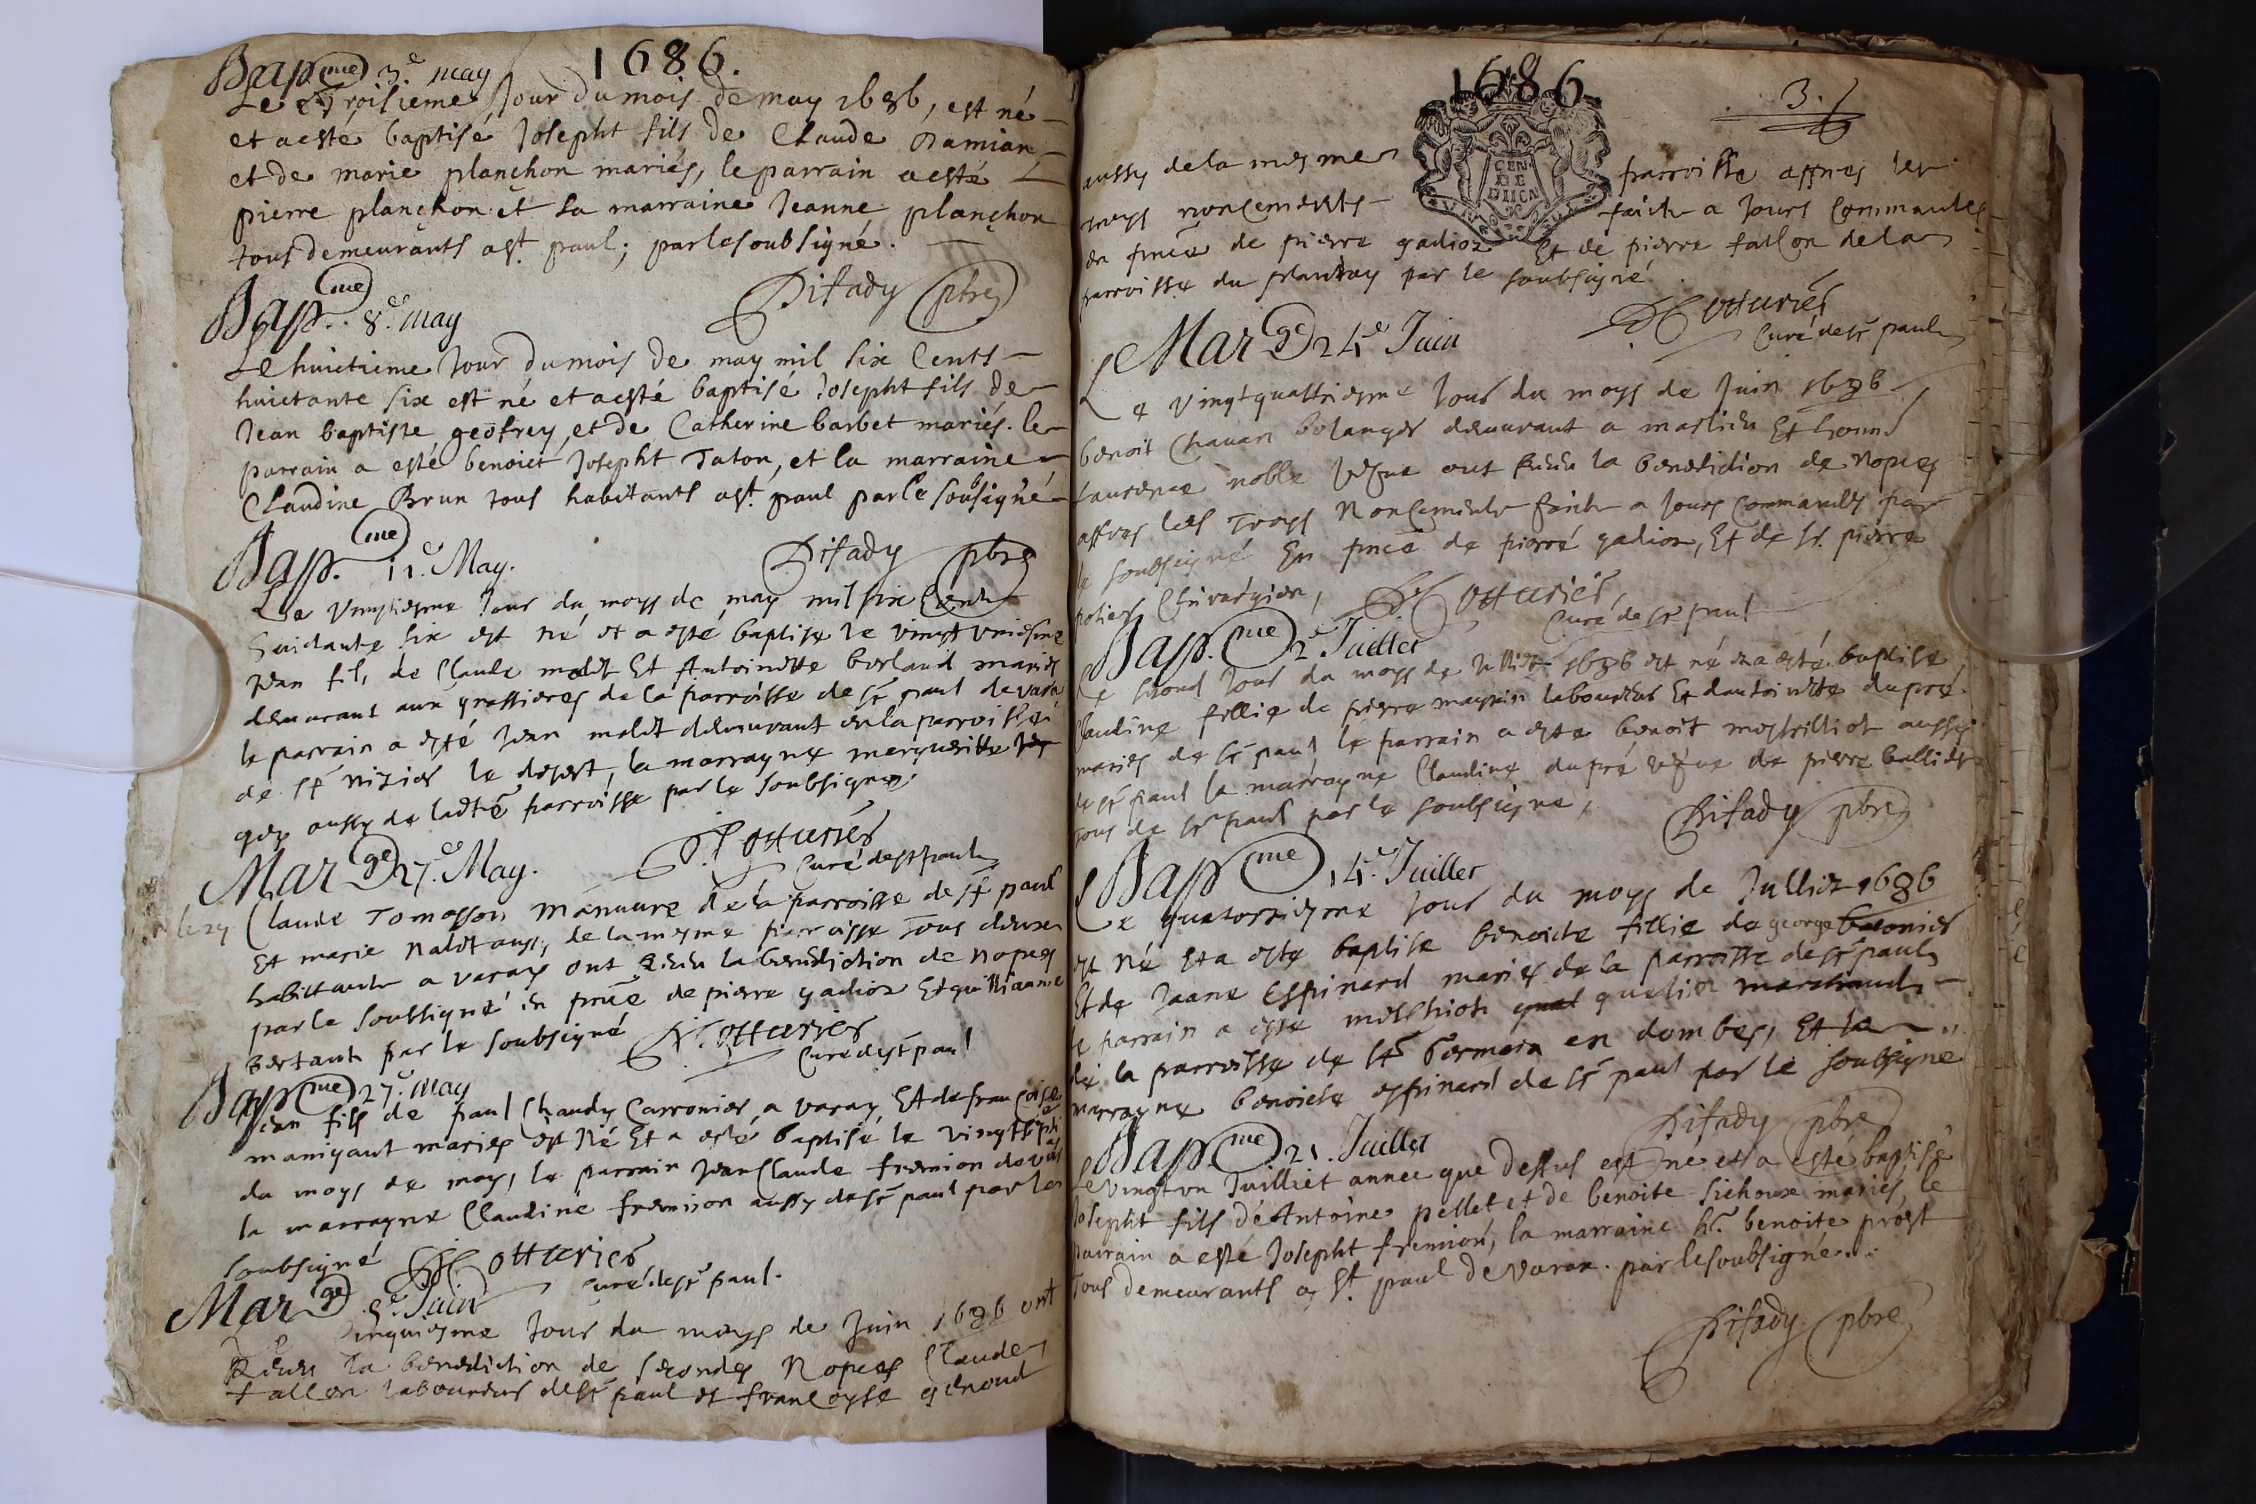 1686.
Bap.me 3.e may
Le troisieme Jour du mois de may 1686, est né
et a esté baptisé Josepht fils de Claude Damian
et de marie plançhon mariés, le parrain a esté
pierre plançhon et la marraine Jeanne plançhon
tous demeurants a st. paul; par le soubsigné.
Difady pbre
Bap.me 8.e may
Le huictieme Jour du mois de may mil six Cents
huictante six est né et a esté baptisé Josepht fils de
Jean baptiste geofrey, et de Catherine barbet mariés. le
parrain a esté benoict Josepht Taton, et la marraine
Claudine Brun tous habitants a st. paul par le soubsigné
Difady pbre
Bap.me 21.e May.
Le vingtiesme Jour du moys de may mil six Cents
huictante six est né et a esté baptise le vingt uniesme
Jean fils de Claude molet Et Antoinette borland mariés
demurant aux grassieres de la parroisse de st paul de varax
le parrain a esté Jean molet demurant en la parroisse
de st nizier le desert, la marrayne marguerite
aussy de ladte parroisse par le soubsigné.
Cotturier
Curé de st paul
Mar.ge 27.e May.
Claude Tomasson manuvre de la parroisse de st paul
Et marie nalet aussy de la mesme parroisse Tous deux
habittants a varax ont Receu la benediction de nopces
par le soubsigné en pnce de pierre gadioz Et guilliaume
bertaut par le soubsigné
Cotturier
Curé de st paul
Bap.me 27.e May
Jean fils de paul Chaudy Carronier a varax, Et de francoise
maniyant maries est Né Et a esté baptisé le vingt
du moys de may, le parrain Jean Claude fremion
la marrayne Claudine fremion aussy de st paul par le
soubsigné
Cotturier
curé de st paul.
Mar.ge 5.e Juin
Le Cinquiesme Jour du moys de Juin 1686 ont
Receu la benediction de secondes Nopces Claude
fallon laboureur de st paul et francoyse genoud
1686
3.
GEN
DE
DIION
aussy de la mesme parroisse appres les
troys noncements faicts a Jours Commandes
en pnce de pierre gadioz Et de pierre fallon de la
parroisse du plantay par le soubsigné
Cotturier
Curé de st paul
Mar.ge 24.e Juin
Le vingt quattriesme Jour du moys de Juin 1686
benoit Chavan bolanger demurant a marlieu Et honne
laurence noble vefve ont Receu la benediction de nopces
appres les Troys Noncements faicts a Jours Commandes par
le soubsigné En pnce de pierre gadioz, Et de sr. pierre
potier Chirurgien,
Cotturier,
Curé de st paul
Bap.me 2.e Juillet
Le second Jour du moys de Julliet 1686 est né Et a esté baptise
Claudine fillie de pierre laboureur Et dantoinette dupré
maries de st paul le parrain a este benoit aussy
de st paul la marrayne Claudine dupré vefve de pierre
tous de st paul par le soubsigne,
Difady pbre
Bap.me 14.e Juillet
Le quatorziesme Jour du moys de Julliet 1686
est né Et a esté baptise benoicte fillie de george
Et de Jeane Espinard maries de la parroisse de st paul
le parrain a este
de la parroisse de st germain en dombes, Et la
marrayne benoicte espinard de st paul par le soubsigne
Difady pbre
Bap.me 21. Juillet
Le vingt vn Juilliet annee que dessus est né et a esté baptisé
Josepht fils de Antoine pellet et de benoite sichoux mariés, le
parrain a esté Josepht fremion, la marraine benoite prost
Tous demeurants a st. paul de varax. par le soubsigné.
Difady pbre